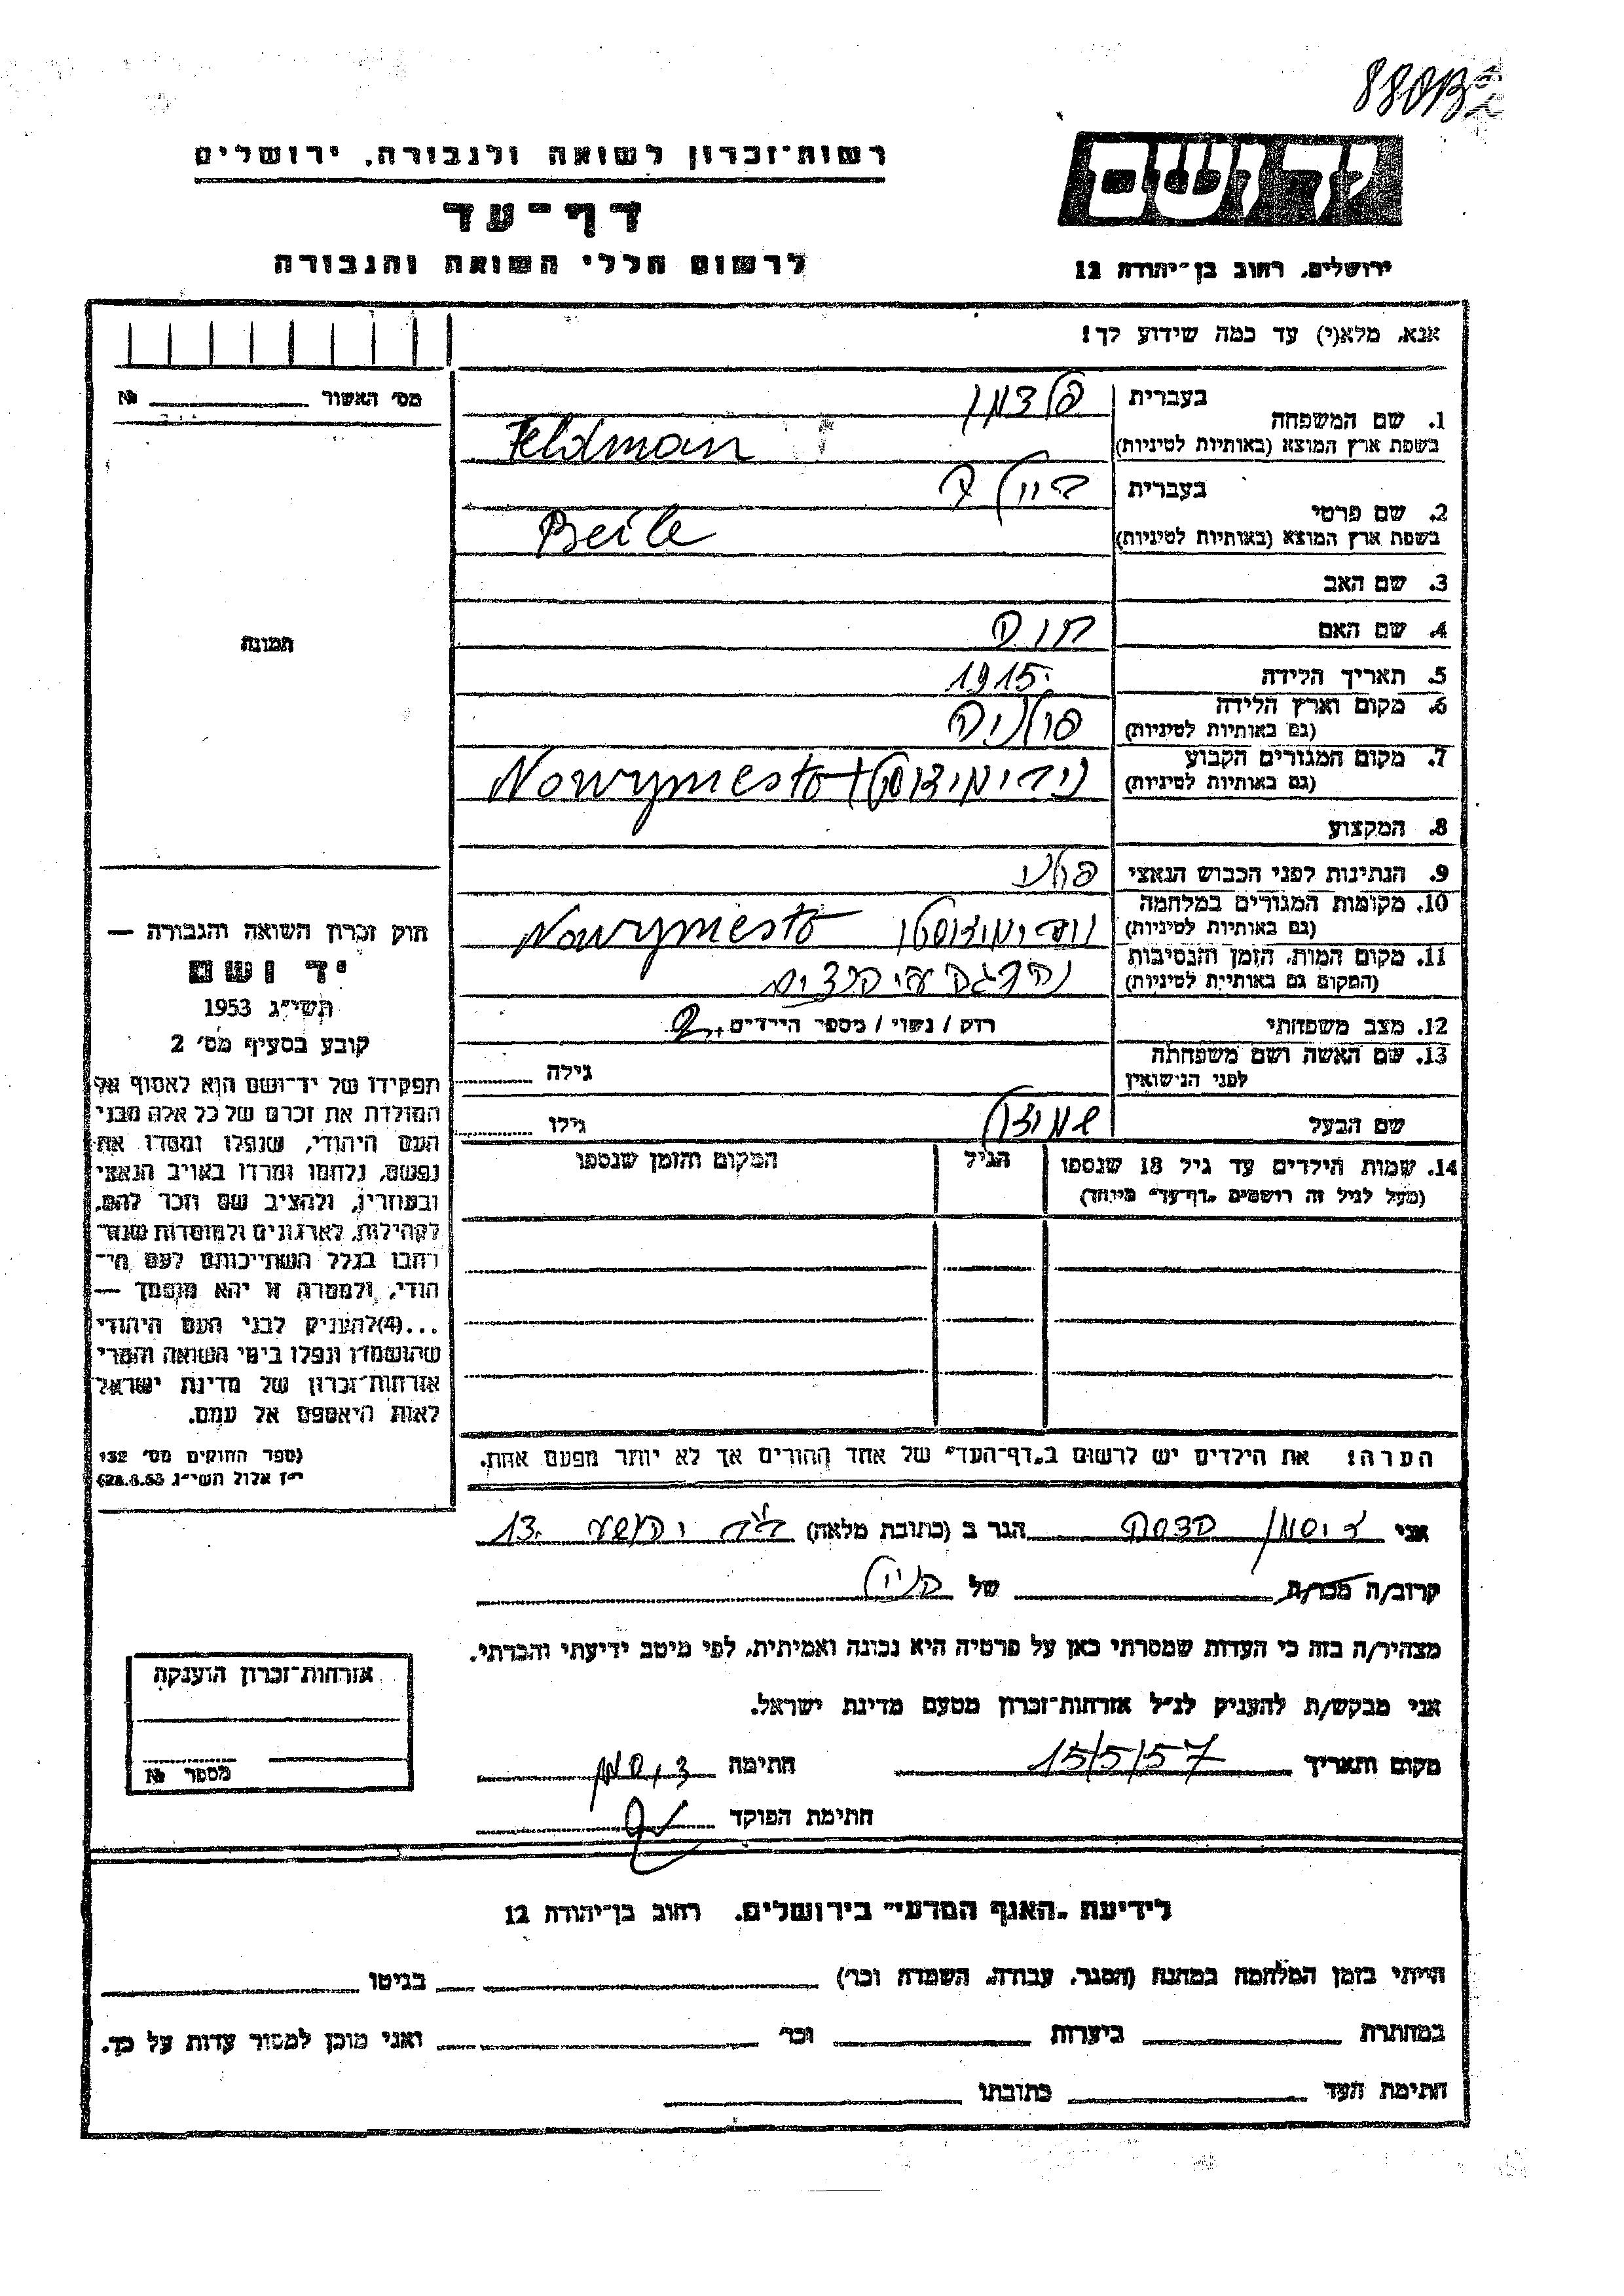 רשות־זכרון לשואה ולגבורה, ירושלים
יד ושם
דף־עד
לרשום חללי השואה והגבורה
ירושלים, רחוב בן־יהודה 12
אנא, מלא(י) עד כמה שידוע לך!
מס׳ האשור № 
בעברית פלדמן
1. שם המשפחה
בשפת ארץ המוצא (באותיות לטיניות) Feldman
בעברית ביילה
2. שם פרטי
בשפת ארץ המוצא (באותיות לטיניות) Beile
3. שם האב
4. שם האם חוה
תמונה
5. תאריך הלידה 1915
6. מקום וארץ הלידה
(גם באותיות לטיניות) פולניה
7. מקום המגורים הקבוע
(גם באותיות לטיניות) Nowymesto
8. המקצוע
9. הנתינות לפני הכבוש הנאצי
10. מקומות המגורים במלחמה
(גם באותיות לטיניות) Nowymesto
11. מקום המות, הזמן והנסיבות
(המקום גם באותיות לטיניות) נהרגה ע״י הנצים
12. מצב משפחתי רווק / נשוי / מספר הילדים 2
13. שם האשה ושם משפחתה
לפני הנישואין גילה
שם הבעל גילו
14. שמות הילדים עד גיל 18 שנספו הגיל המקום והזמן שנספו
(מעל לגיל זה רושמים „דף־עד״ מיוחד)
הערה: את הילדים יש לרשום ב„דף־העד״ של אחד ההורים אך לא יותר מפעם אחת.
חוק זכרון השואה והגבורה —
יד ושם
תשי״ג 1953
קובע בסעיף מס׳ 2
תפקידו של יד־ושם הוא לאסוף אל
המולדת את זכרם של כל אלה מבני
העם היהודי, שנפלו ומסרו את
נפשם, נלחמו ומרדו באויב הנאצי
ובעוזריו, ולהציב שם וזכר להם,
לקהילות, לארגונים ולמוסדות שנח־
רבו בגלל השתייכותם לעם הי־
הודי, ולמטרה זו יהא מוסמך —
...(4)להעניק לבני העם היהודי
שהושמדו ונפלו בימי השואה והמרי
אזרחות־זכרון של מדינת ישראל
לאות היאספם אל עמם.
(ספר החוקים מס׳ 132
י״ז אלול תשי״ג 28.8.53)
אני הדסה הגר ב (כתובת מלאה) 13
קרוב/ה מכר/ת של
מצהיר/ה בזה כי העדות שמסרתי כאן על פרטיה היא נכונה ואמיתית, לפי מיטב ידיעתי והכרתי.
אני מבקש/ת להעניק לנ״ל אזרחות־זכרון מטעם מדינת ישראל.
מקום ותאריך 15/5/57 חתימה
חתימת הפוקד
אזרחות־זכרון הוענקה
מספר №
לידיעת „האגף המדעי״ בירושלים, רחוב בן־יהודה 12
הייתי בזמן המלחמה במחנה (הסגר, עבודה, השמדה וכו׳) בגיטו
במחתרת ביערות וכו׳ ואני מוכן למסור עדות על כך.
חתימת העד כתובתו